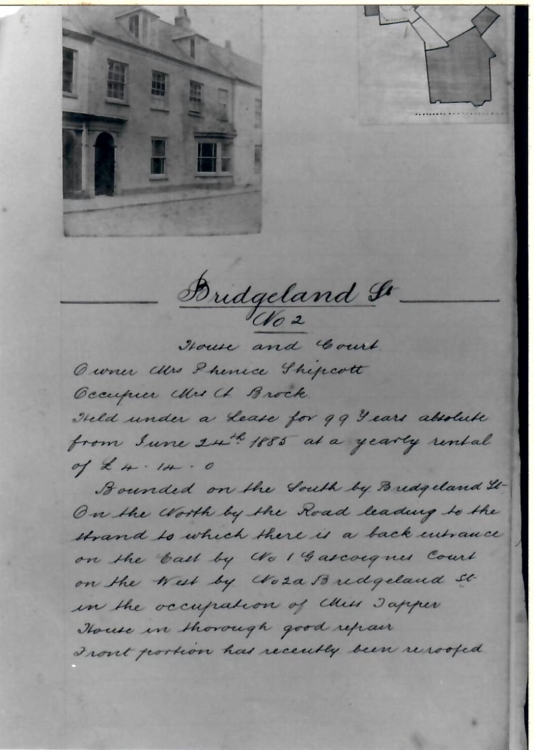 Bridgeland St
No 2
House and Court
Owner Mrs Phenice Shipcott
Occupier Mrs A Brock
Held under a Lease for 99 Years absolute
from June 24th 1885 at a yearly rental
of £ 4 - 14 - 0
Bounded on the South by Bridgeland St
On the North by the Road leading to the
strand to which there is a back entrance
on the East by No 1 Gascoignes Court
on the West by No 2a Bridgeland St
in the occupation of Miss Tapper
House in thorough good repair
Front portion has recently been reroofed